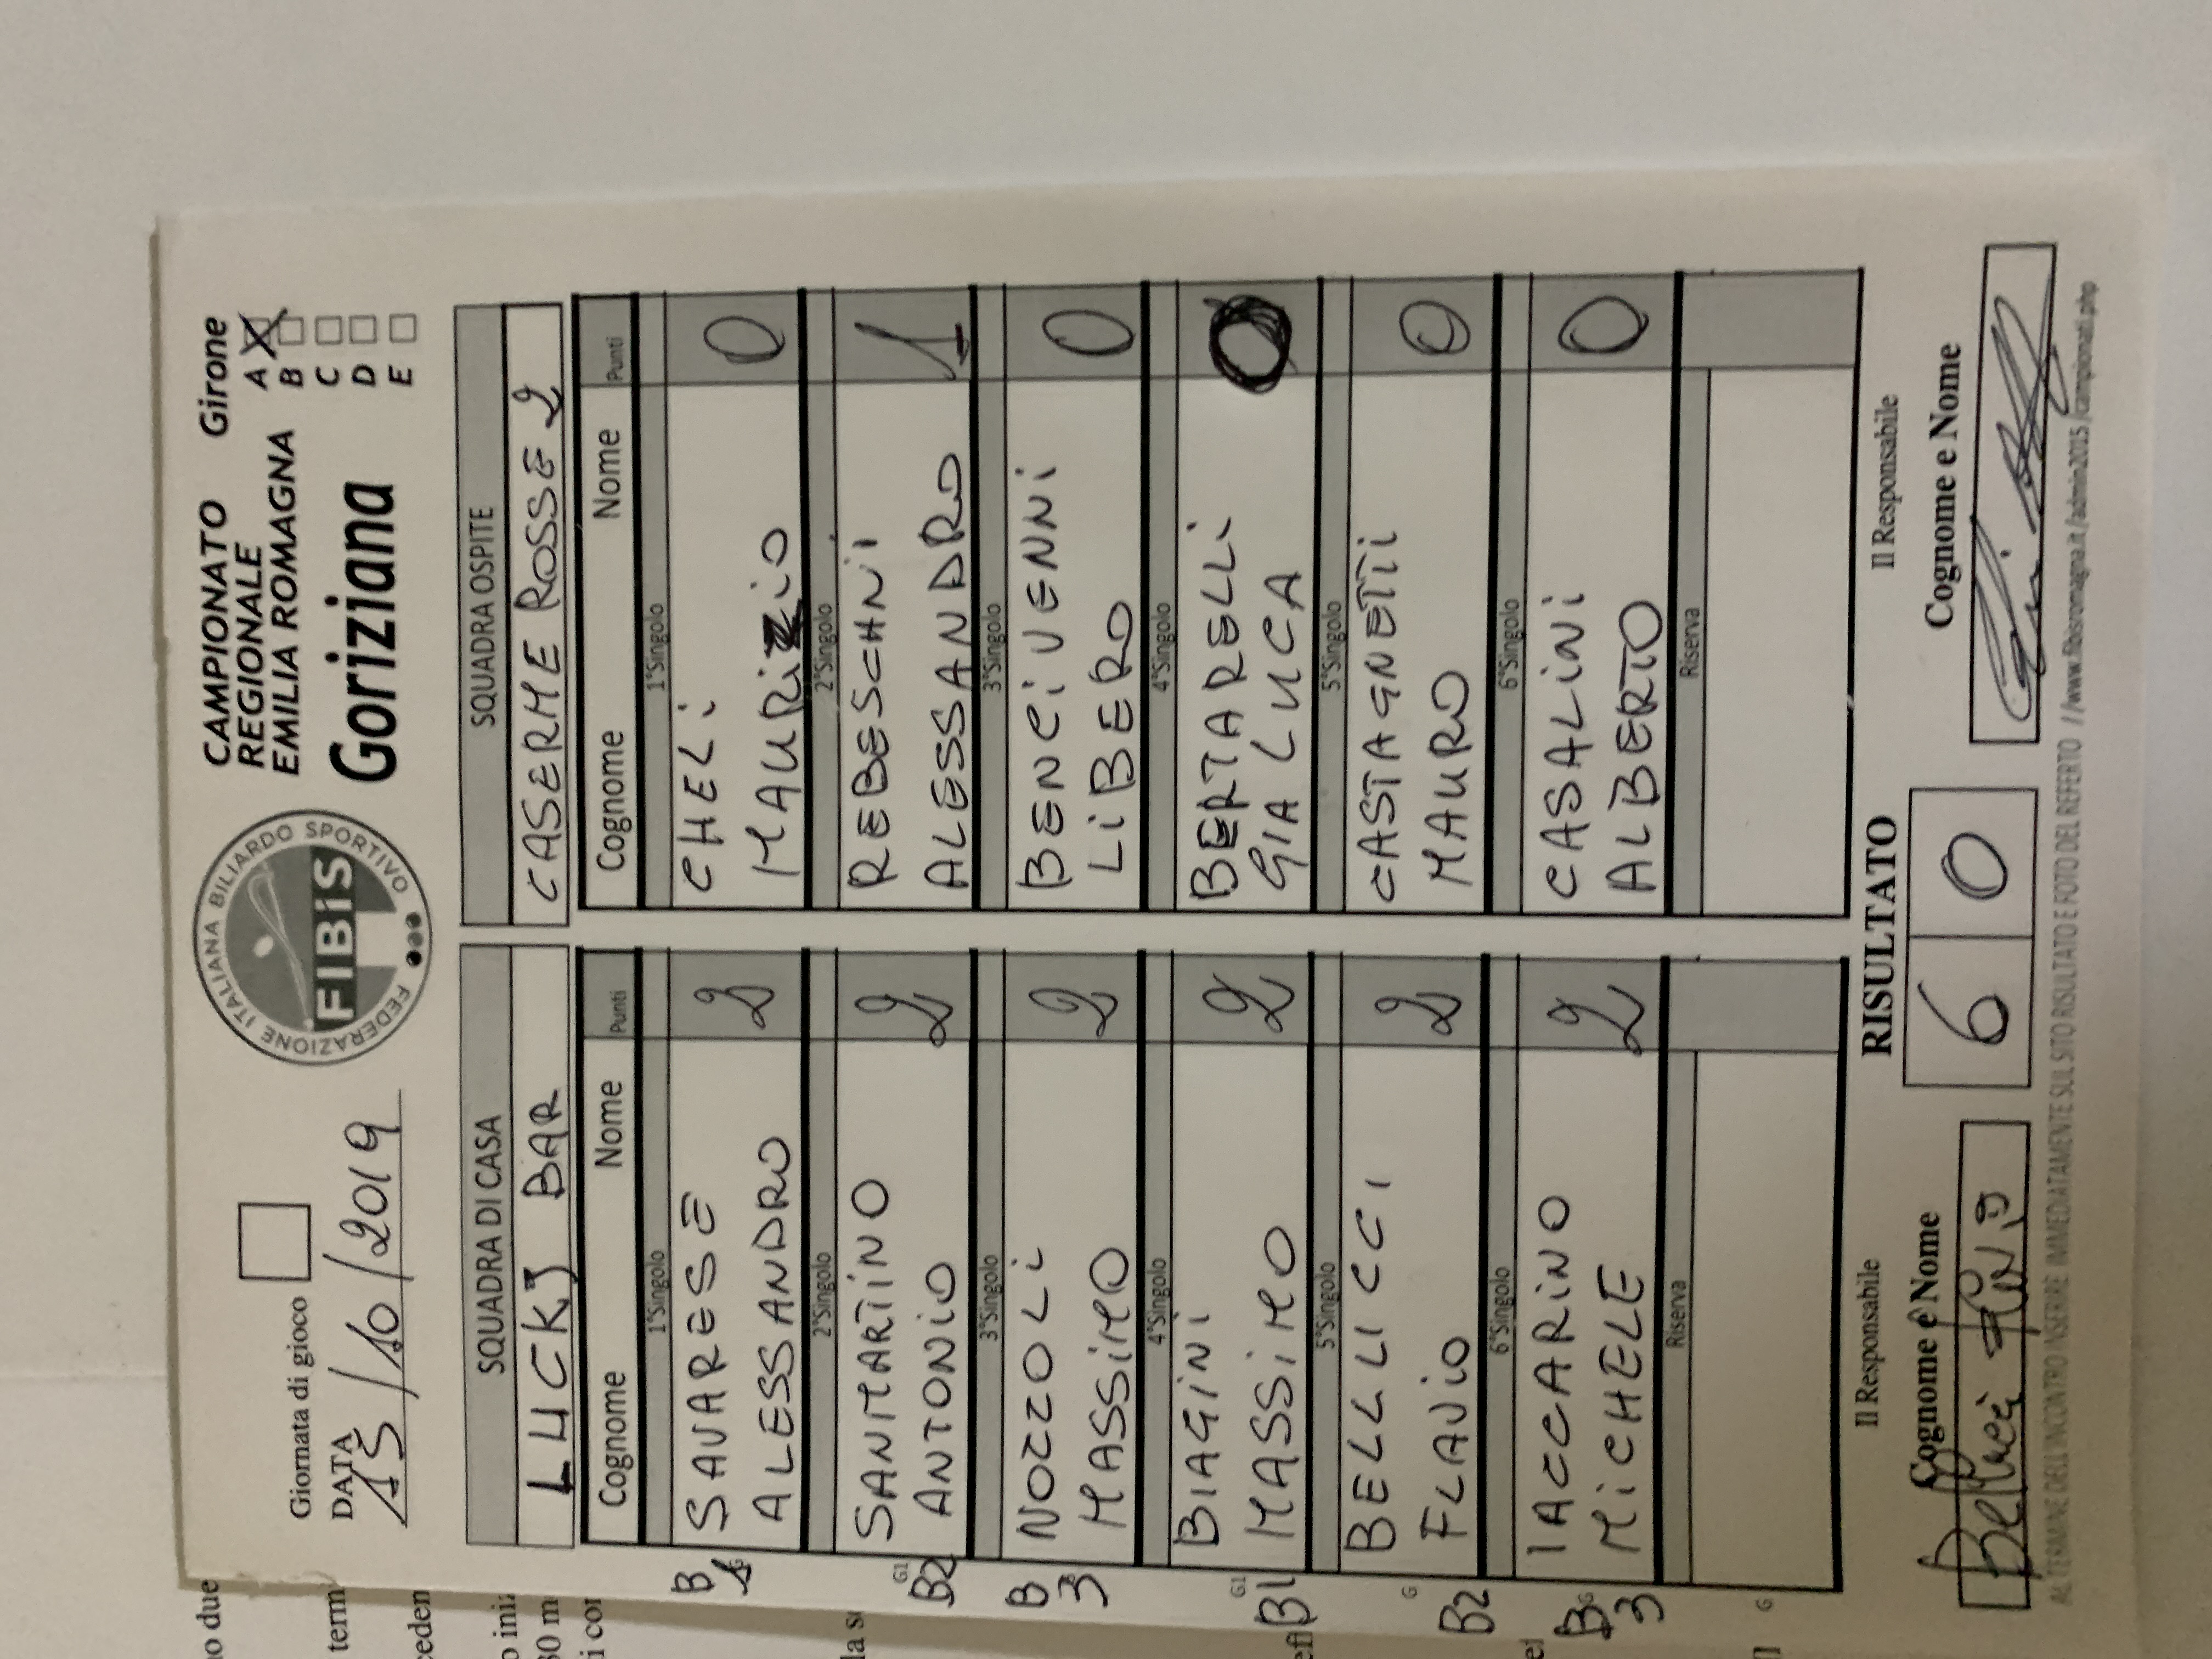 Giornata di gioco
DATA
15/10/2019
FEDERAZIONE ITALIANA BILIARDO SPORTIVO
FIBiS
CAMPIONATO
REGIONALE
EMILIA ROMAGNA
Goriziana
Girone
A
B
C
D
E
SQUADRA DI CASA
LUCKJ BAR
Cognome Nome Punti
1°Singolo
SAVARESE
ALESSANDRO 2
2°Singolo
SANMARTINO
ANTONIO 2
3°Singolo
NOZZOLI
MASSIMO 2
4°Singolo
BIAGINI
MASSIMO 2
5°Singolo
BELLUCCI
FLAVIO 2
6°Singolo
IACCARINO
MICHELE 2
Riserva
SQUADRA OSPITE
CASERME ROSSE 2
Cognome Nome Punti
1°Singolo
CHELI
MAURIZIO 0
2°Singolo
REBESCHNI
ALESSANDRO 1
3°Singolo
BENCIVENNI
LIBERO 0
4°Singolo
BERTARELLI
GIA LUCA 0
5°Singolo
CASTAGNETTI
MAURO 0
6°Singolo
CASALINI
ALBERTO 0
Riserva
Il Responsabile
Cognome e Nome
RISULTATO
6 0
Il Responsabile
Cognome e Nome
AL TERMINE DELL'INCONTRO INSERIRE IMMEDIATAMENTE SUL SITO RISULTATO E FOTO DEL REFERTO //www.fibisromagna.it/admin2015/campionati.php
B1
G1
B2
B
3
G1
B1
G
B2
G
B
3
G
no due
term
ceden
30 m
i con